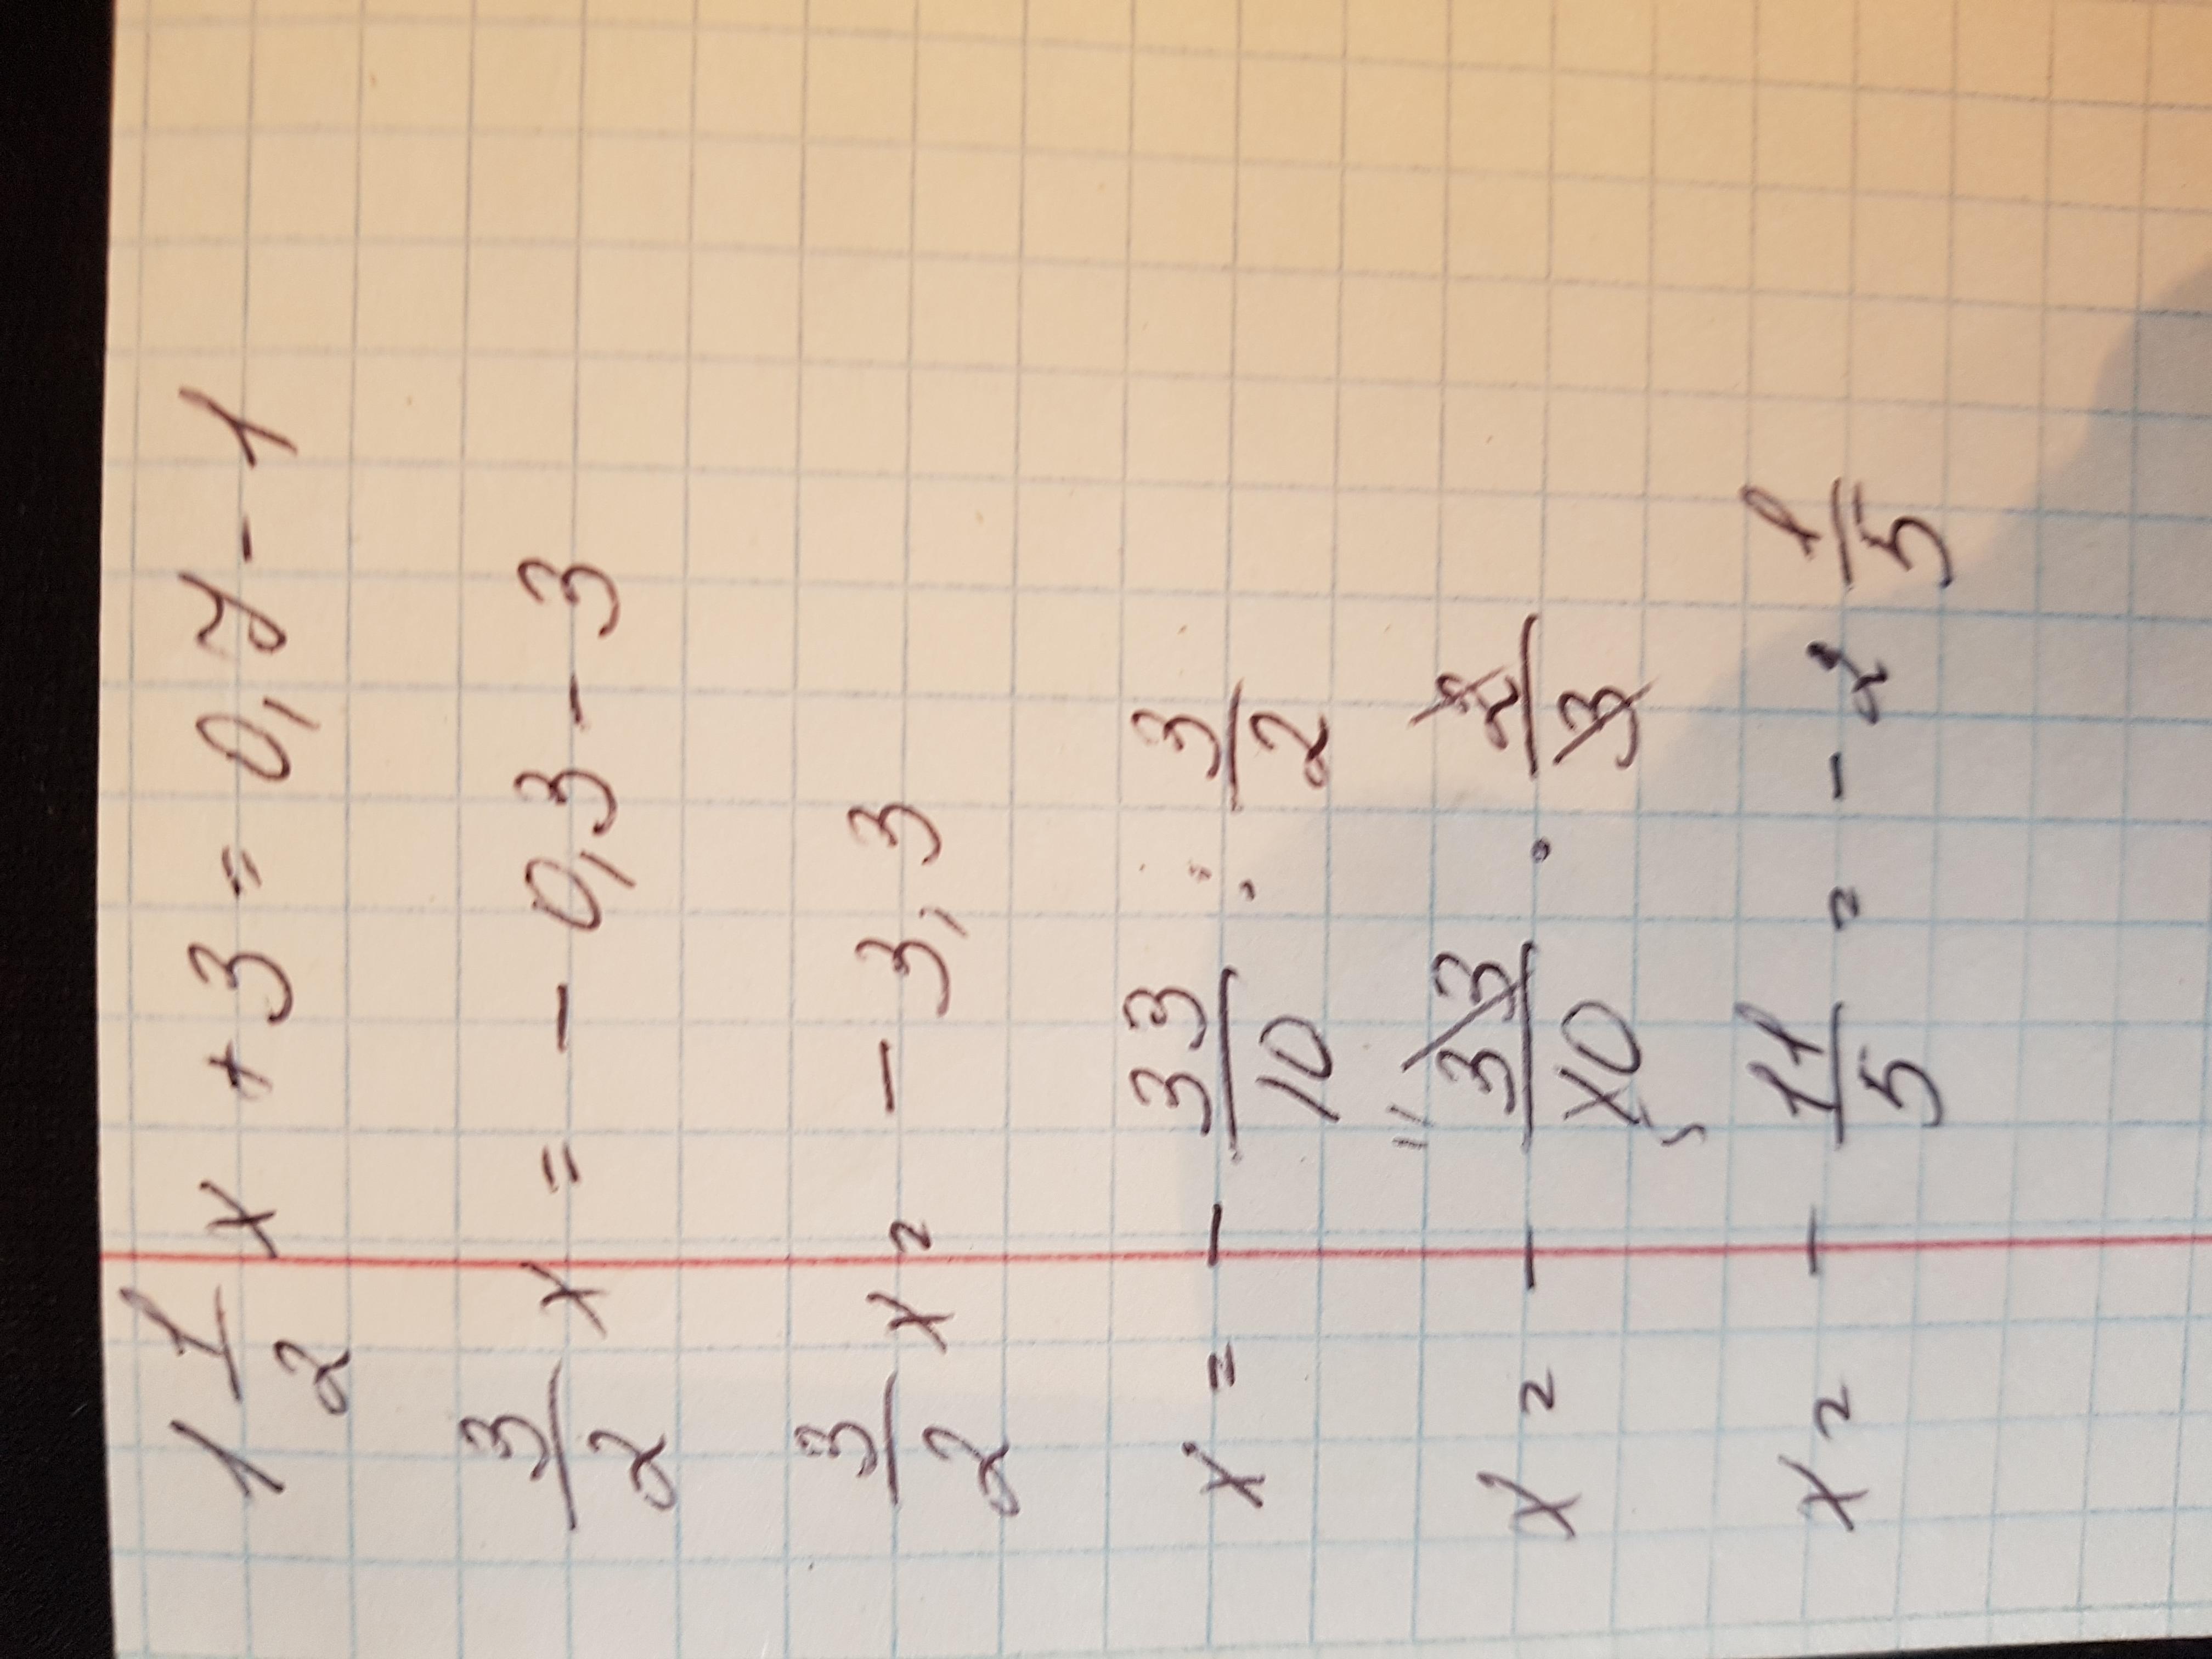 1 1/2 x + 3 = 0,7 - 1
3/2 x = - 0,3 - 3
3/2 x = - 3,3
x = - 33/10 : 3/2
x = - 33/10 · 2/3
11
5
x = - 11/5 = - 2 1/5